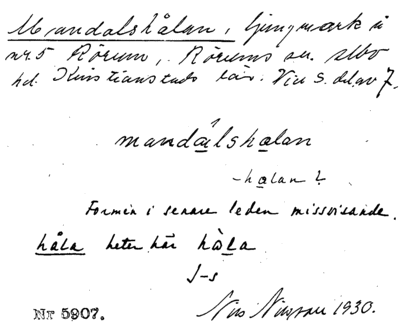 Mandalshålan, ljungmark å
nr 5 Rörum, Rörums sn. Albo
hd. Kristianstads län. Vid S. del av 7.
mandạ́lshạlan
-hạlan?
Formen i senare leden missvisande.
håla heter här hạ̀la
J-s
Nr 5907. Nils Nilsson 1930.